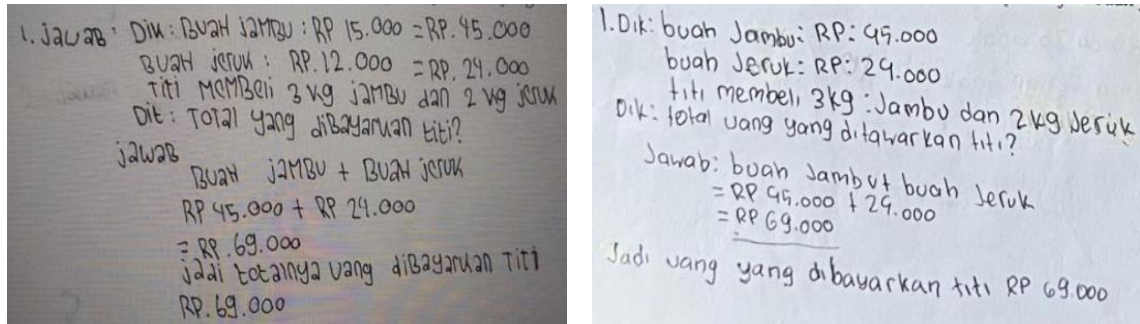 1. Jawab: Dik: Buah jambu: RP 15.000 = RP. 45.000
Buah jeruk: RP. 12.000 = RP. 24.000
Titi Membeli 3 kg jambu dan 2 kg jeruk
Dit: Total yang dibayarkan titi?
jawab
Buah jambu + Buah jeruk
RP 45.000 + RP 24.000
= RP. 69.000
jadi totalnya uang dibayarkan Titi
RP. 69.000
1. Dik: buah Jambu: RP: 45.000
buah Jeruk: RP: 24.000
titi membeli 3kg: Jambu dan 2kg Jeruk
Dik: total uang yang ditawarkan titi?
Jawab: buah Jambu + buah Jeruk
= RP 45.000 + 24.000
= RP 69.000
Jadi uang yang dibayarkan titi RP 69.000